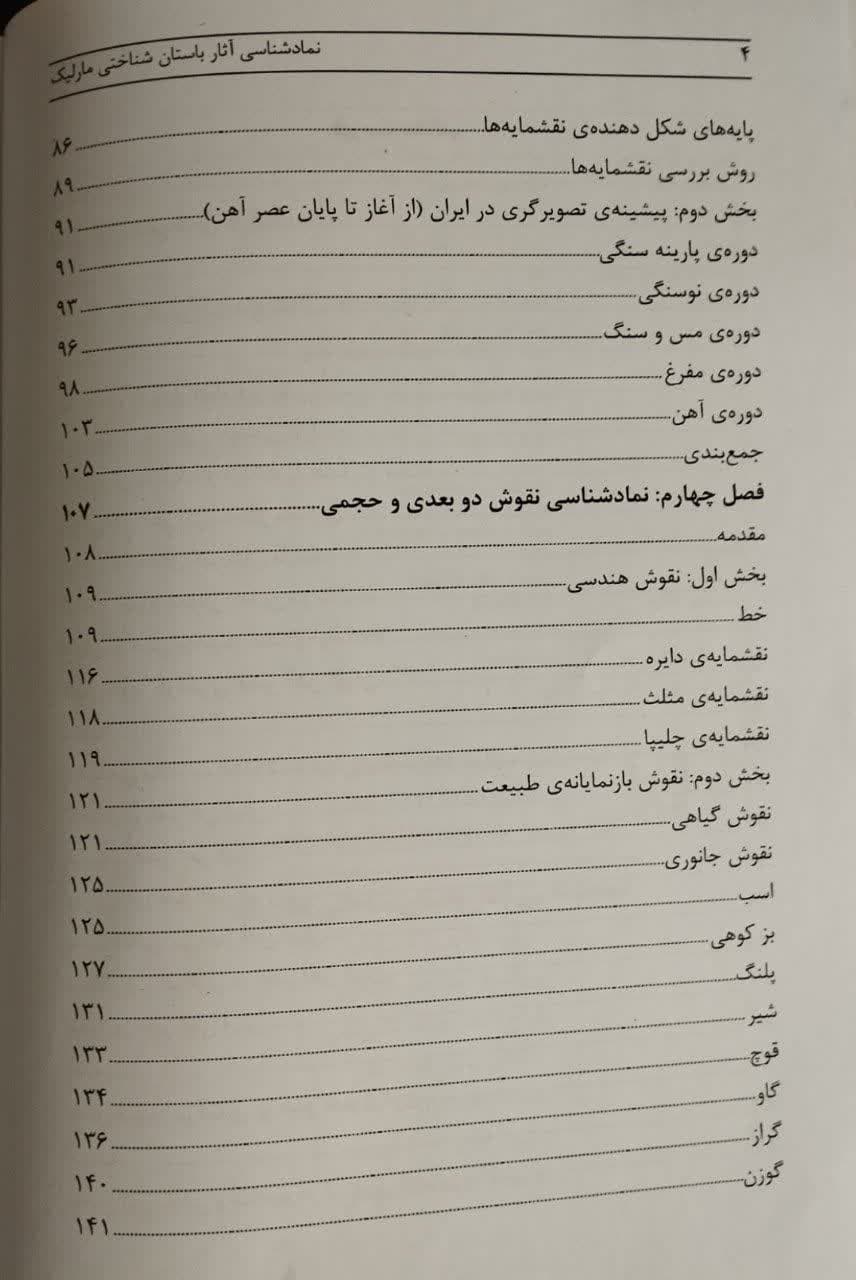 ۴ نمادشناسی آثار باستان شناختی مارلیک
پایه‌های شکل دهنده‌ی نقشمایه‌ها ۸۶
روش بررسی نقشمایه‌ها ۸۹
بخش دوم: پیشینه‌ی تصویرگری در ایران (از آغاز تا پایان عصر آهن) ۹۱
دوره‌ی پارینه سنگی ۹۱
دوره‌ی نوسنگی ۹۳
دوره‌ی مس و سنگ ۹۶
دوره‌ی مفرغ ۹۸
دوره‌ی آهن ۱۰۳
جمع‌بندی ۱۰۵
فصل چهارم: نمادشناسی نقوش دو بعدی و حجمی ۱۰۷
مقدمه ۱۰۸
بخش اول: نقوش هندسی ۱۰۹
خط ۱۰۹
نقشمایه‌ی دایره ۱۱۶
نقشمایه‌ی مثلث ۱۱۸
نقشمایه‌ی چلیپا ۱۱۹
بخش دوم: نقوش بازنمایانه‌ی طبیعت ۱۲۱
نقوش گیاهی ۱۲۱
نقوش جانوری ۱۲۵
اسب ۱۲۵
بز کوهی ۱۲۷
پلنگ ۱۳۱
شیر ۱۳۳
قوچ ۱۳۴
گاو ۱۳۶
گراز ۱۴۰
گوزن ۱۴۱